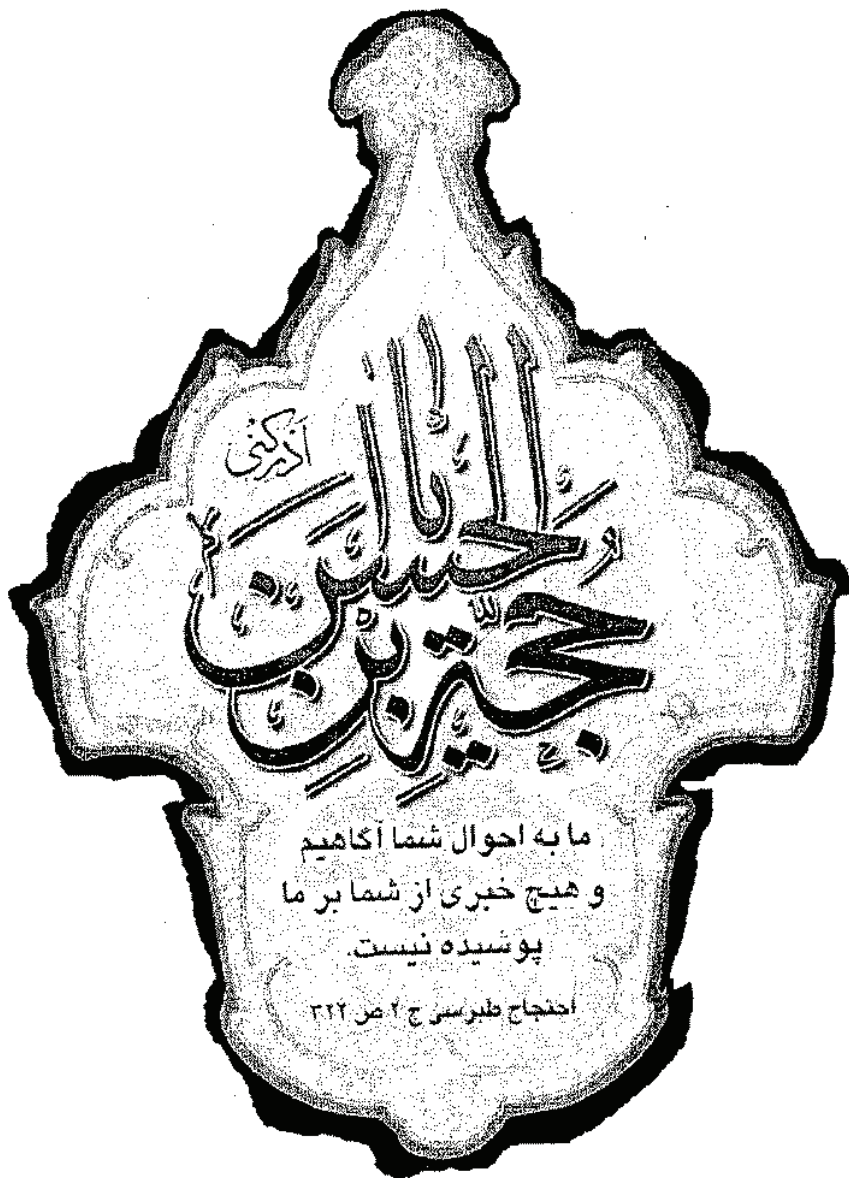 یا حجة بن الحسن
أدرکنی
ما به احوال شما آگاهیم
و هیچ خبری از شما بر ما
پوشیده نیست.
احتجاج طبرسی ج ۲ ص ۳۲۲